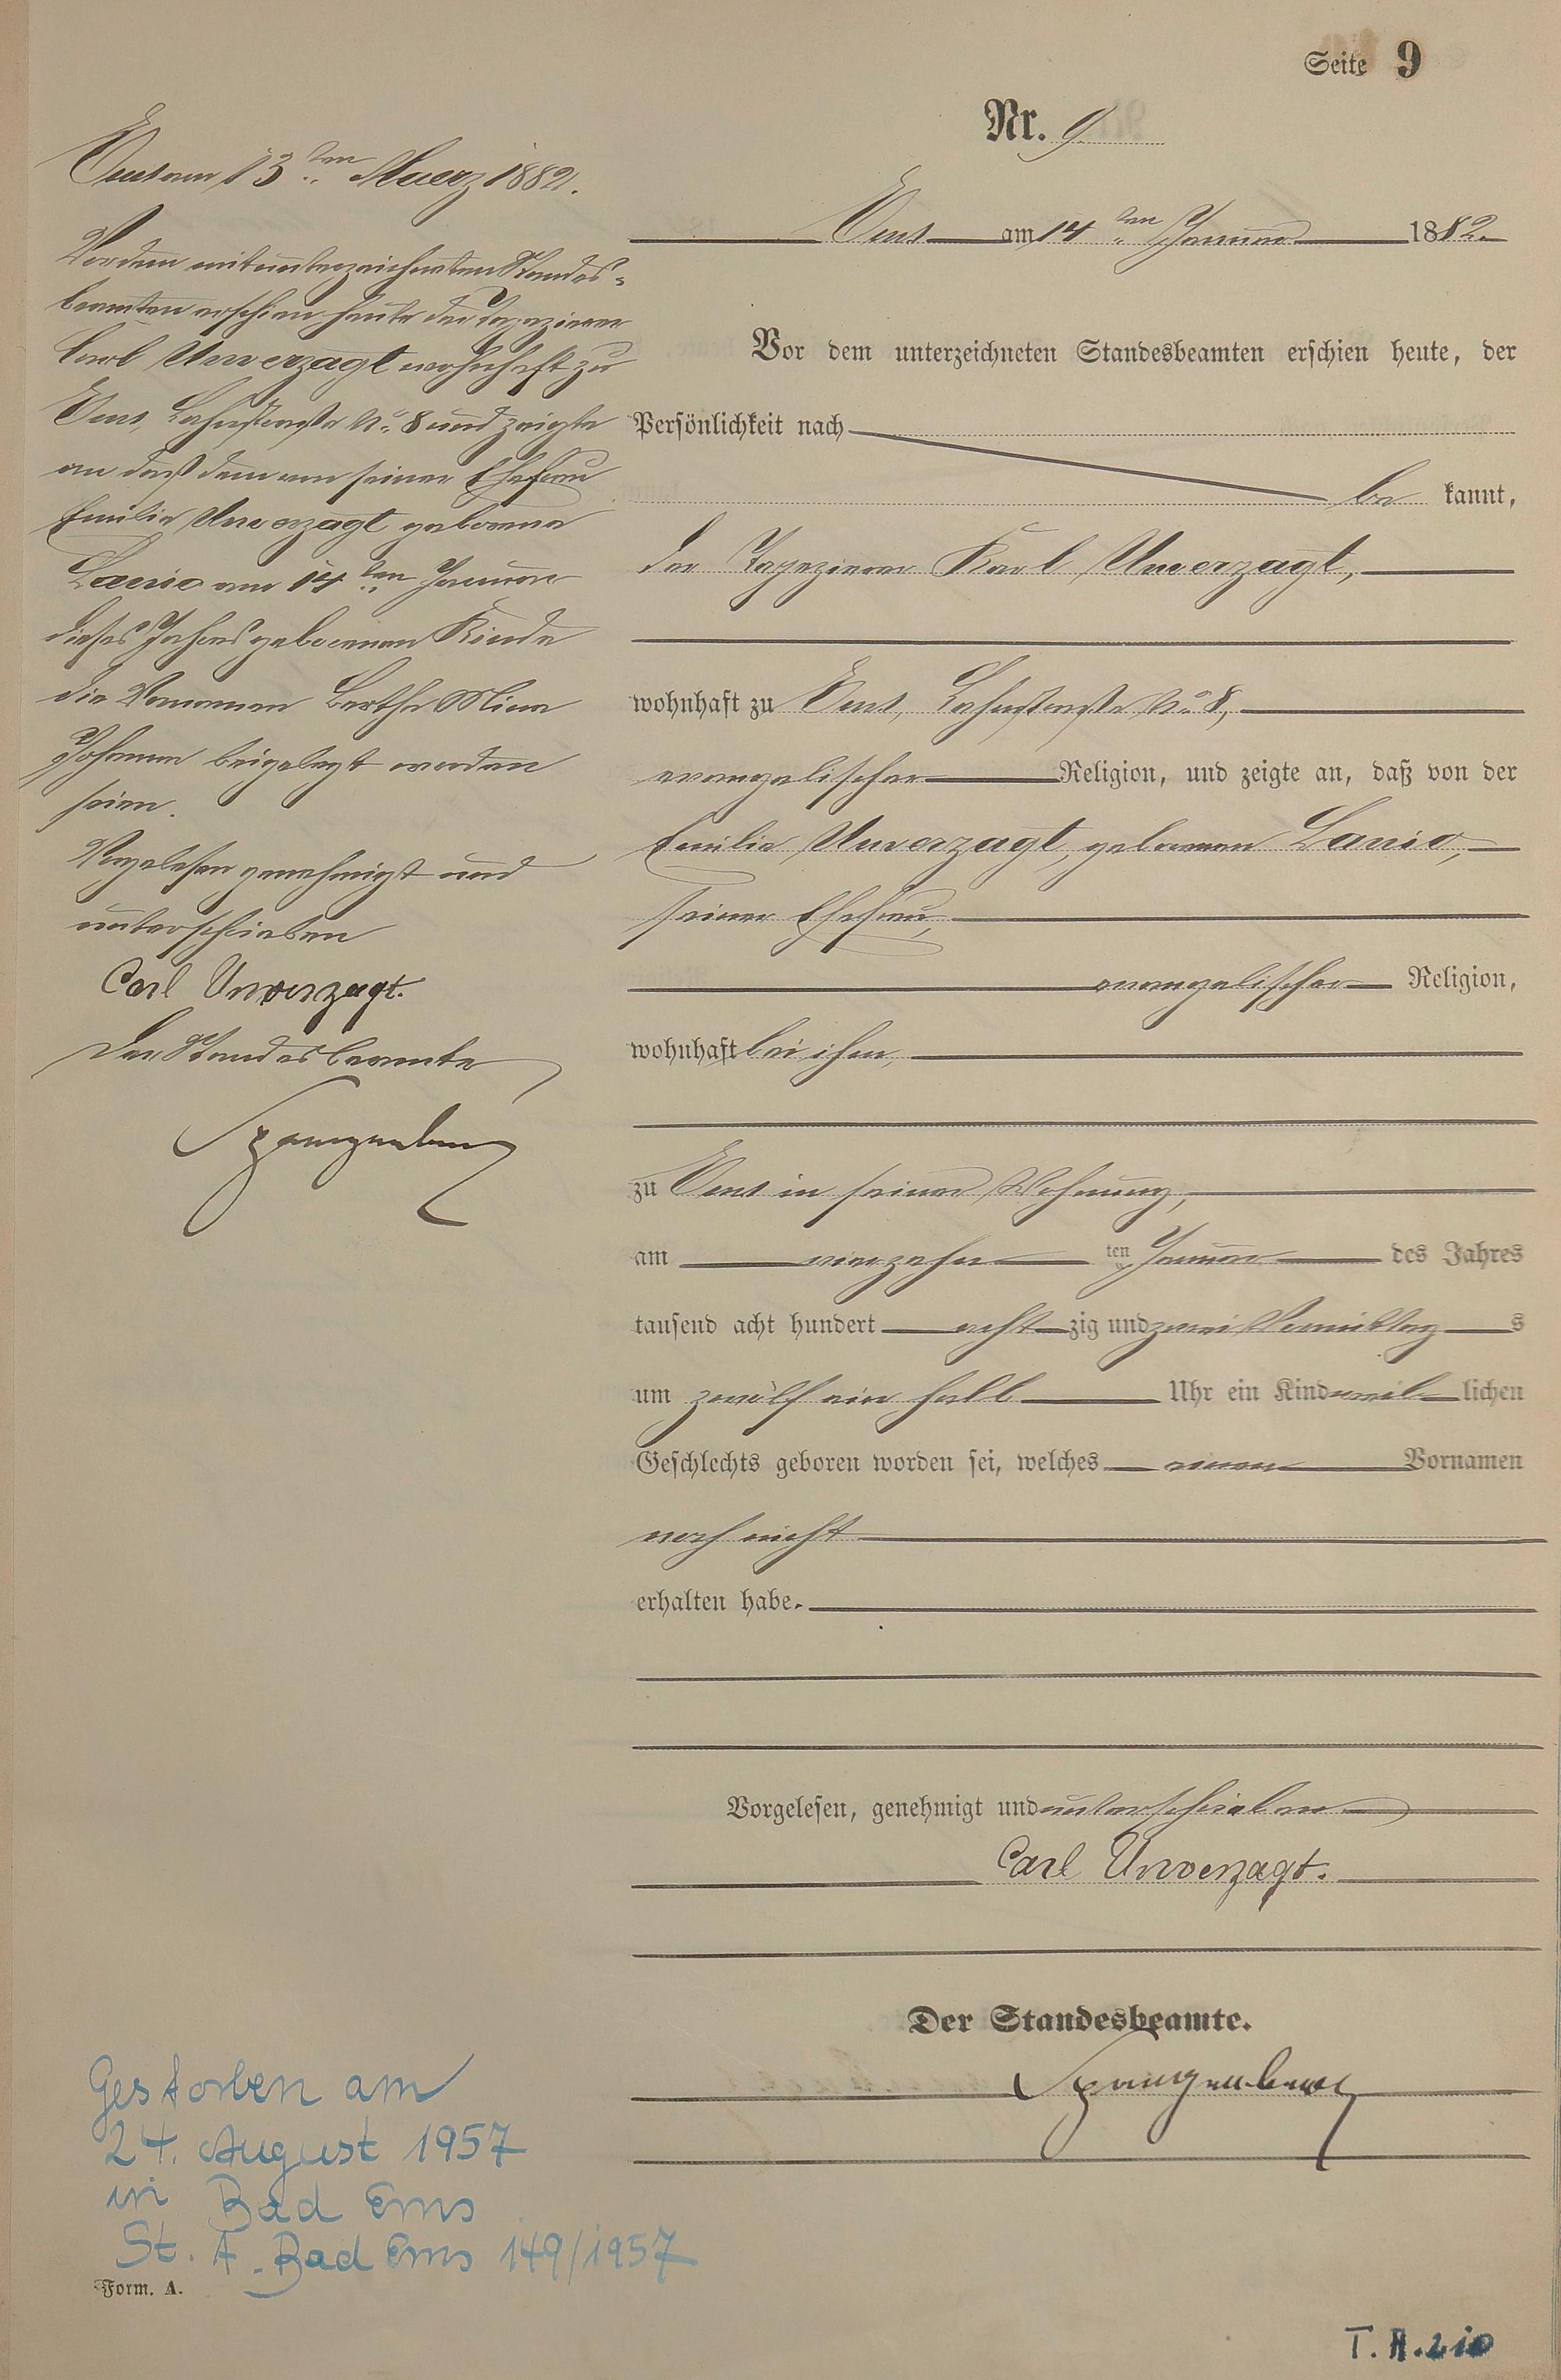 Seite 9
Nr. 9.
Ems am 14ten Januar 1882.
Vor dem unterzeichneten Standesbeamten erschien heute, der
Persönlichkeit nach
be kannt,
der Tapezierer Karl Unverzagt,
wohnhaft zu Ems, Lahnstraße No. 8,
evangelischer Religion, und zeigte an, daß von der
Emilie Unverzagt, geborenen Lanio,
seiner Ehefrau,
evangelischer Religion,
wohnhaft bei ihm,
zu Ems in seiner Wohnung,
am vierzehn ten Januar des Jahres
tausend acht hundert acht zig und zwei Vormittag s
um zwölf ein halb Uhr ein Kind weib lichen
Geschlechts geboren worden sei, welches einen Vornamen
noch nicht
erhalten habe.
Vorgelesen, genehmigt und unterschrieben
Carl Unverzagt.
Der Standesbeamte.
Spangenberg
Ems am 13ten Maerz 1882.
Vor dem mitunterzeichneten Standes=
beamten erschien heute der Tapezierer
Carl Unverzagt wohnhaft zu
Ems, Lahnstraße No. 8 und zeigte
an daß dem von seiner Ehefrau
Emilie Unverzagt geborene
Lanio am 14ten Januar
dieses Jahres geborenen Kinde
die Vornamen Bertha Mina
Johanna beigelegt worden
seien.
Vorgelesen genehmigt und
unterschrieben
Carl Unverzagt.
Der Standesbeamte
Spangenberg
Gestorben am
24. August 1957
in Bad Ems
St. A. Bad Ems 149/1957
Form. A.